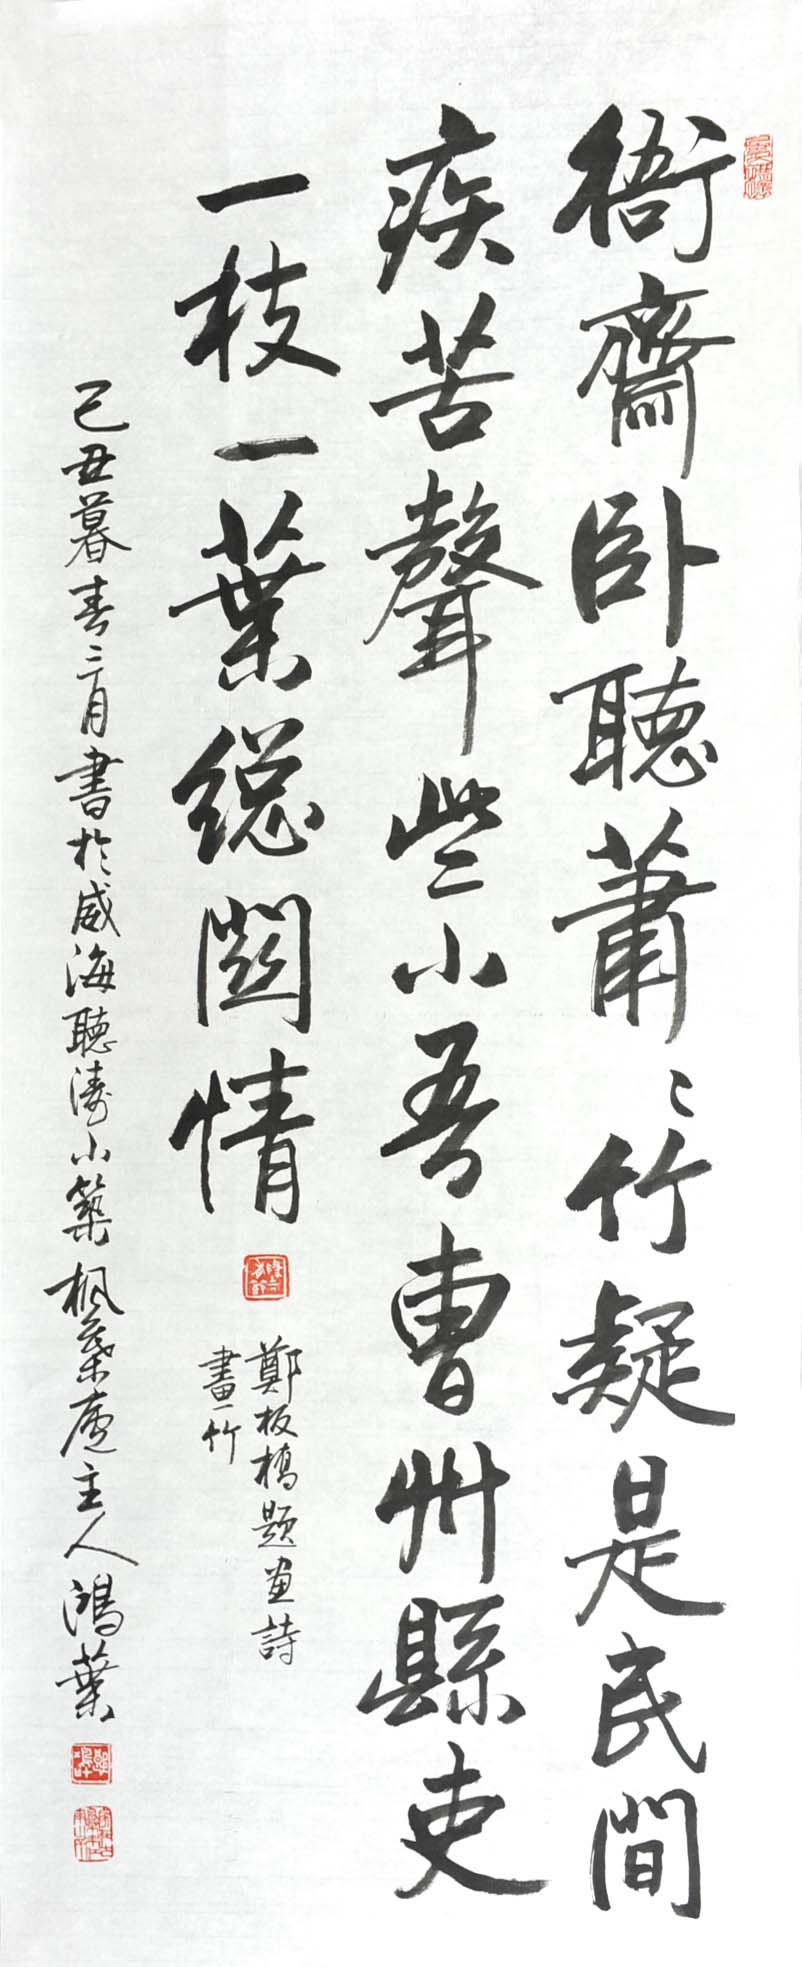 衙齋卧聽蕭〻竹疑是民間
疾苦聲些小吾曹州縣吏
一枝一葉總關情
鄭板橋題画詩
畫竹
己丑暮春三月書於威海聽濤小築楓葉庵主人鴻葉